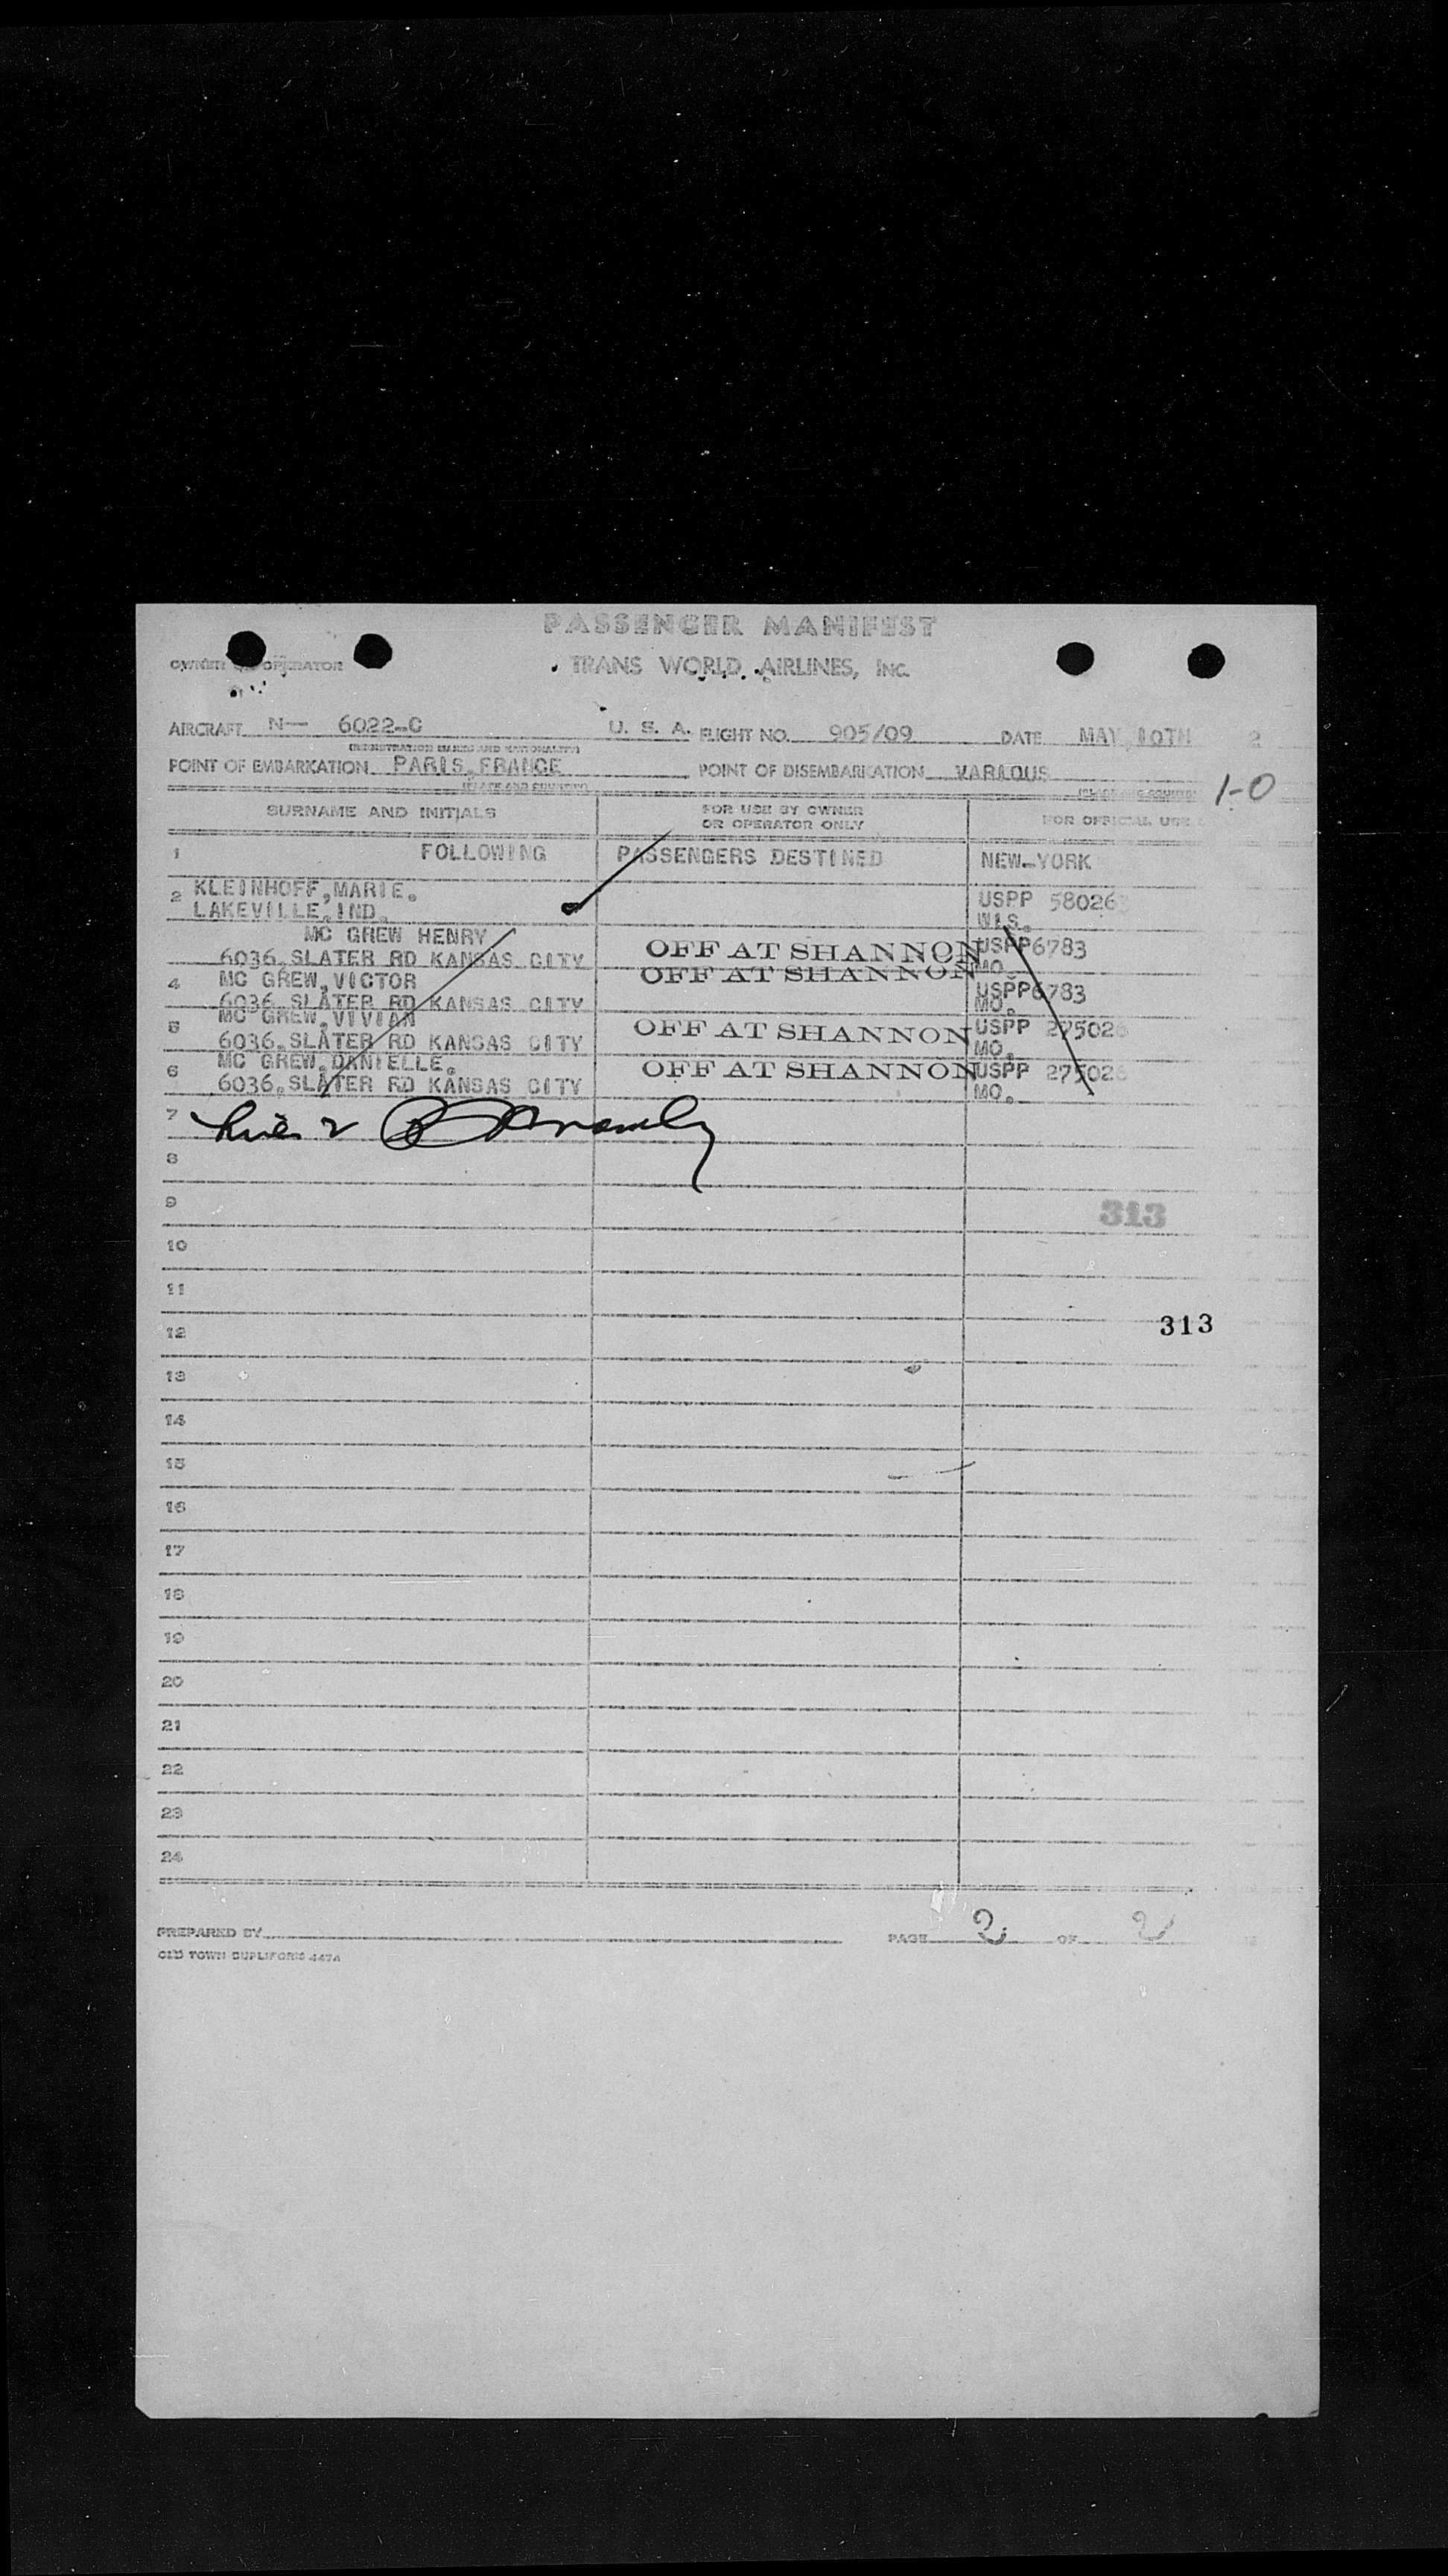 PASSENGER MANIFEST
OWNER OPERATOR TRANS WORLD AIRLINES, INC.
AIRCRAFT N— 6022-C U. S. A. FLIGHT NO. 905/09 DATE MAY 10TH 2
(REGISTRATION MARKS AND NATIONALITY)
POINT OF EMBARKATION PARIS,FRANCE POINT OF DISEMBARKATION VARIOUS
(PLACE AND COUNTRY) (PLACE AND COUNTRY)
1-0
SURNAME AND INITIALS FOR USE BY OWNER OR OPERATOR ONLY FOR OFFICIAL USE
1 FOLLOWING PASSENGERS DESTINED NEW-YORK
2 KLEINHOFF,MARIE. USPP 58026
LAKEVILLE,IND. WIS.
MC GREW HENRY OFF AT SHANNON USPP6783
6036,SLATER RD KANSAS CITY MO.
4 MC GREW,VICTOR OFF AT SHANNON USPP6783
6036,SLATER RD KANSAS CITY MO.
5 MC GREW,VIVIAN OFF AT SHANNON USPP 275026
6036,SLATER RD KANSAS CITY MO.
6 MC GREW,DANIELLE. OFF AT SHANNON USPP 275026
6036,SLATER RD KANSAS CITY MO.
7
8
9
313
10
11
12
313
13
14
15
16
17
18
19
20
21
22
23
24
PREPARED BY PAGE 2 OF 2
OLD TOWN DUPLIFORMS 447A